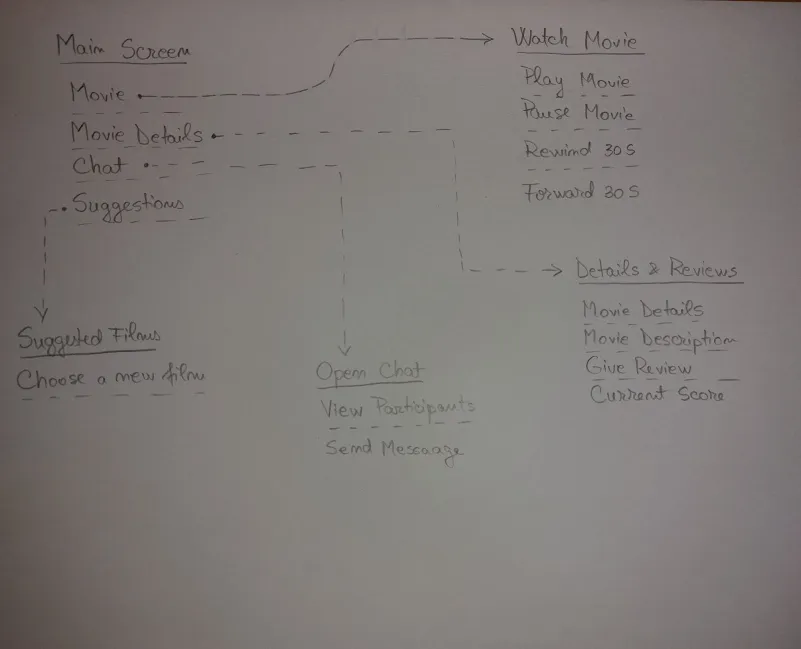 Main Screen
Movie
Movie Details
Chat
Suggestions
Watch Movie
Play Movie
Pause Movie
Rewind 30 S
Forward 30 S
Details & Reviews
Movie Details
Movie Description
Give Review
Current Score
Suggested Films
Choose a new film
Open Chat
View Participants
Send Message